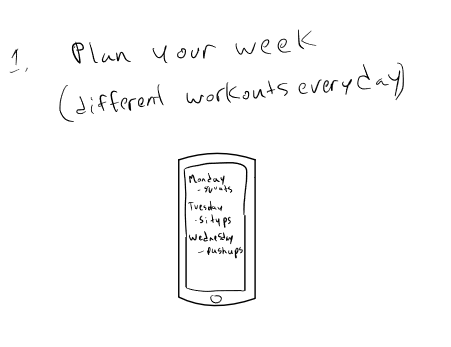 1. Plan your week
(different workouts everyday)
Monday
- squats
Tuesday
- situps
Wednesday
- pushups